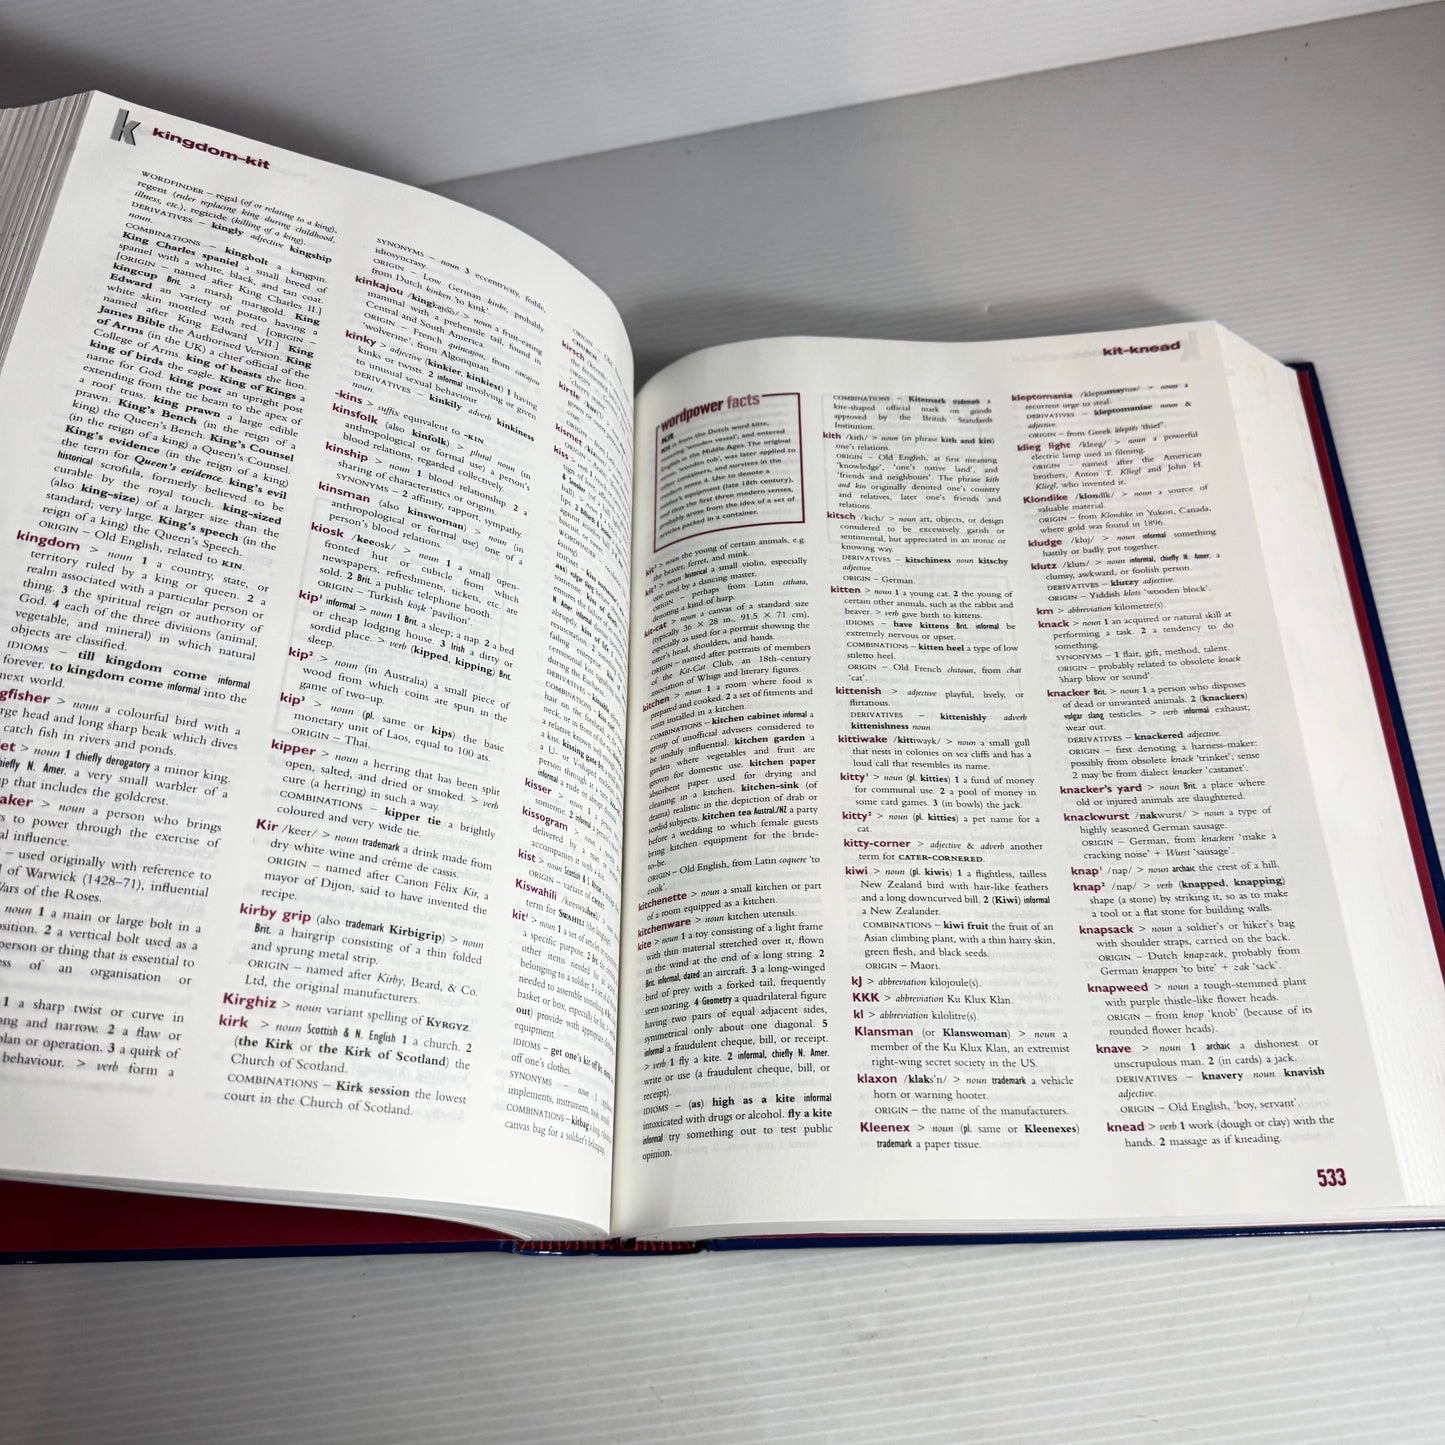 k kingdom–kit
WORDFINDER – regal (of or relating to a king),
regent (ruler replacing king during childhood,
illness, etc.), regicide (killing of a king).
DERIVATIVES – kingly adjective kingship
noun.
COMBINATIONS – kingbolt a kingpin.
King Charles spaniel a small breed of
spaniel with a white, black, and tan coat.
[ORIGIN – named after King Charles II.]
kingcup Brit. a marsh marigold. King
Edward an variety of potato having a
white skin mottled with red. [ORIGIN –
named after King Edward VII.] King
James Bible the Authorised Version. King
of Arms (in the UK) a chief official of the
College of Arms. king of beasts the lion.
king of birds the eagle. King of Kings a
name for God. king post an upright post
extending from the tie beam to the apex of
a roof truss. king prawn a large edible
prawn. King's Bench (in the reign of a
king) the Queen's Bench. King's Counsel
(in the reign of a king) a Queen's Counsel.
King's evidence (in the reign of a king)
the term for Queen's evidence. king's evil
historical scrofula, formerly believed to be
curable by the royal touch. king-sized
(also king-size) of a larger size than the
standard; very large. King's speech (in the
reign of a king) the Queen's Speech.
ORIGIN – Old English, related to KIN.
kingdom > noun 1 a country, state, or
territory ruled by a king or queen. 2 a
realm associated with a particular person or
thing. 3 the spiritual reign or authority of
God. 4 each of the three divisions (animal,
vegetable, and mineral) in which natural
objects are classified.
IDIOMS – till kingdom come informal
forever. to kingdom come informal into the
next world.
gfisher > noun a colourful bird with a
rge head and long sharp beak which dives
catch fish in rivers and ponds.
let > noun 1 chiefly derogatory a minor king.
hiefly N. Amer. a very small warbler of a
up that includes the goldcrest.
aker > noun a person who brings
s to power through the exercise of
al influence.
– used originally with reference to
l of Warwick (1428–71), influential
Wars of the Roses.
noun 1 a main or large bolt in a
sition. 2 a vertical bolt used as a
person or thing that is essential to
ess of an organisation or
1 a sharp twist or curve in
ong and narrow. 2 a flaw or
plan or operation. 3 a quirk of
behaviour. > verb form a
SYNONYMS – noun 3 eccentricity, foible,
idiosyncrasy.
ORIGIN – Low German kinke, probably
from Dutch kinken 'to kink'.
kinkajou /kingkajoo/ > noun a fruit-eating
mammal with a prehensile tail, found in
Central and South America.
ORIGIN – French quincajou, from carcajou
'wolverine', from Algonquian.
kinky > adjective (kinkier, kinkiest) 1 having
kinks or twists. 2 informal involving or given
to unusual sexual behaviour.
DERIVATIVES – kinkily adverb kinkiness
noun.
-kins > suffix equivalent to -KIN.
kinsfolk (also kinfolk) > plural noun (in
anthropological or formal use) a person's
blood relations, regarded collectively.
kinship > noun 1 blood relationship. 2 a
sharing of characteristics or origins.
SYNONYMS – 2 affinity, rapport, sympathy.
kinsman (also kinswoman) > noun (in
anthropological or formal use) one of a
person's blood relations.
kiosk /keeosk/ > noun 1 a small open-
fronted hut or cubicle from which
newspapers, refreshments, tickets, etc. are
sold. 2 Brit. a public telephone booth.
ORIGIN – Turkish köşk 'pavilion'.
kip¹ informal > noun 1 Brit. a sleep; a nap. 2 a bed
or cheap lodging house. 3 Irish a dirty or
sordid place. > verb (kipped, kipping) Brit.
sleep.
kip² > noun (in Australia) a small piece of
wood from which coins are spun in the
game of two-up.
kip³ > noun (pl. same or kips) the basic
monetary unit of Laos, equal to 100 ats.
ORIGIN – Thai.
kipper > noun a herring that has been split
open, salted, and dried or smoked. > verb
cure (a herring) in such a way.
COMBINATIONS – kipper tie a brightly
coloured and very wide tie.
Kir /keer/ > noun trademark a drink made from
dry white wine and crème de cassis.
ORIGIN – named after Canon Félix Kir, a
mayor of Dijon, said to have invented the
recipe.
kirby grip (also trademark Kirbigrip) > noun
Brit. a hairgrip consisting of a thin folded
and sprung metal strip.
ORIGIN – named after Kirby, Beard, & Co.
Ltd, the original manufacturers.
Kirghiz > noun variant spelling of KYRGYZ.
kirk > noun Scottish & N. English 1 a church. 2
(the Kirk or the Kirk of Scotland) the
Church of Scotland.
COMBINATIONS – Kirk session the lowest
court in the Church of Scotland.
kirsch
kirtle
kismet
kiss
kisser
kissogram
kist
Kiswahili
term for SWAHILI
kit¹ > noun 1 a set of
a specific purpose. 2 Brit.
other items needed for
belonging to a soldier. 3
needed to assemble something
out) provide with appropriate
equipment.
IDIOMS – get one's kit off
off one's clothes.
SYNONYMS – noun 1
implements, instruments, tools
COMBINATIONS – kitbag a long
canvas bag for a soldier's belongings.
kit–knead
wordpower facts
Kit
Kit is from the Dutch word kitte,
meaning 'wooden vessel', and entered
English in the Middle Ages. The original
sense, 'wooden tub', was later applied to
other containers, and survives in the
modern sense 4. Use to denote a
soldier's equipment (late 18th century),
and then the first three modern senses,
probably arose from the idea of a set of
articles packed in a container.
kit² > noun the young of certain animals, e.g.
the beaver, ferret, and mink.
kit³ > noun historical a small violin, especially
one used by a dancing master.
ORIGIN – perhaps from Latin cithara,
denoting a kind of harp.
kit-cat > noun a canvas of a standard size
(typically 36 × 28 in., 91.5 × 71 cm),
especially as used for a portrait showing the
sitter's head, shoulders, and hands.
ORIGIN – named after portraits of members
of the Kit-Cat Club, an 18th-century
association of Whigs and literary figures.
kitchen > noun 1 a room where food is
prepared and cooked. 2 a set of fitments and
units installed in a kitchen.
COMBINATIONS – kitchen cabinet informal a
group of unofficial advisers considered to
be unduly influential. kitchen garden a
garden where vegetables and fruit are
grown for domestic use. kitchen paper
absorbent paper used for drying and
cleaning in a kitchen. kitchen-sink (of
drama) realistic in the depiction of drab or
sordid subjects. kitchen tea Austral./NZ a party
before a wedding to which female guests
bring kitchen equipment for the bride-
to-be.
ORIGIN – Old English, from Latin coquere 'to
cook'.
kitchenette > noun a small kitchen or part
of a room equipped as a kitchen.
kitchenware > noun kitchen utensils.
kite > noun 1 a toy consisting of a light frame
with thin material stretched over it, flown
in the wind at the end of a long string. 2
Brit. informal, dated an aircraft. 3 a long-winged
bird of prey with a forked tail, frequently
seen soaring. 4 Geometry a quadrilateral figure
having two pairs of equal adjacent sides,
symmetrical only about one diagonal. 5
informal a fraudulent cheque, bill, or receipt.
> verb 1 fly a kite. 2 informal, chiefly N. Amer.
write or use (a fraudulent cheque, bill, or
receipt).
IDIOMS – (as) high as a kite informal
intoxicated with drugs or alcohol. fly a kite
informal try something out to test public
opinion.
COMBINATIONS – Kitemark trademark a
kite-shaped official mark on goods
approved by the British Standards
Institution.
kith /kith/ > noun (in phrase kith and kin)
one's relations.
ORIGIN – Old English, at first meaning
'knowledge', 'one's native land', and
'friends and neighbours'. The phrase kith
and kin originally denoted one's country
and relatives, later one's friends and
relations.
kitsch /kich/ > noun art, objects, or design
considered to be excessively garish or
sentimental, but appreciated in an ironic or
knowing way.
DERIVATIVES – kitschiness noun kitschy
adjective.
ORIGIN – German.
kitten > noun 1 a young cat. 2 the young of
certain other animals, such as the rabbit and
beaver. > verb give birth to kittens.
IDIOMS – have kittens Brit. informal be
extremely nervous or upset.
COMBINATIONS – kitten heel a type of low
stiletto heel.
ORIGIN – Old French chitoun, from chat
'cat'.
kittenish > adjective playful, lively, or
flirtatious.
DERIVATIVES – kittenishly adverb
kittenishness noun.
kittiwake /kittiwayk/ > noun a small gull
that nests in colonies on sea cliffs and has a
loud call that resembles its name.
kitty¹ > noun (pl. kitties) 1 a fund of money
for communal use. 2 a pool of money in
some card games. 3 (in bowls) the jack.
kitty² > noun (pl. kitties) a pet name for a
cat.
kitty-corner > adjective & adverb another
term for CATER-CORNERED.
kiwi > noun (pl. kiwis) 1 a flightless, tailless
New Zealand bird with hair-like feathers
and a long downcurved bill. 2 (Kiwi) informal
a New Zealander.
COMBINATIONS – kiwi fruit the fruit of an
Asian climbing plant, with a thin hairy skin,
green flesh, and black seeds.
ORIGIN – Maori.
kJ > abbreviation kilojoule(s).
KKK > abbreviation Ku Klux Klan.
kl > abbreviation kilolitre(s).
Klansman (or Klanswoman) > noun a
member of the Ku Klux Klan, an extremist
right-wing secret society in the US.
klaxon /klaks'n/ > noun trademark a vehicle
horn or warning hooter.
ORIGIN – the name of the manufacturers.
Kleenex > noun (pl. same or Kleenexes)
trademark a paper tissue.
kleptomania /kleptəmayniə/ > noun a
recurrent urge to steal.
DERIVATIVES – kleptomaniac noun &
adjective.
ORIGIN – from Greek kleptēs 'thief'.
klieg light /kleeg/ > noun a powerful
electric lamp used in filming.
ORIGIN – named after the American
brothers, Anton T. Kliegl and John H.
Kliegl, who invented it.
Klondike /klondīk/ > noun a source of
valuable material.
ORIGIN – from Klondike in Yukon, Canada,
where gold was found in 1896.
kludge /kluj/ > noun informal something
hastily or badly put together.
klutz /kluts/ > noun informal, chiefly N. Amer. a
clumsy, awkward, or foolish person.
DERIVATIVES – klutzy adjective.
ORIGIN – Yiddish klots 'wooden block'.
km > abbreviation kilometre(s).
knack > noun 1 an acquired or natural skill at
performing a task. 2 a tendency to do
something.
SYNONYMS – 1 flair, gift, method, talent.
ORIGIN – probably related to obsolete knack
'sharp blow or sound'.
knacker Brit. > noun 1 a person who disposes
of dead or unwanted animals. 2 (knackers)
vulgar slang testicles. > verb informal exhaust;
wear out.
DERIVATIVES – knackered adjective.
ORIGIN – first denoting a harness-maker:
possibly from obsolete knack 'trinket'; sense
2 may be from dialect knacker 'castanet'.
knacker's yard > noun Brit. a place where
old or injured animals are slaughtered.
knackwurst /nakwurst/ > noun a type of
highly seasoned German sausage.
ORIGIN – German, from knacken 'make a
cracking noise' + Wurst 'sausage'.
knap¹ /nap/ > noun archaic the crest of a hill.
knap² /nap/ > verb (knapped, knapping)
shape (a stone) by striking it, so as to make
a tool or a flat stone for building walls.
knapsack > noun a soldier's or hiker's bag
with shoulder straps, carried on the back.
ORIGIN – Dutch knapzack, probably from
German knappen 'to bite' + zak 'sack'.
knapweed > noun a tough-stemmed plant
with purple thistle-like flower heads.
ORIGIN – from knop 'knob' (because of its
rounded flower heads).
knave > noun 1 archaic a dishonest or
unscrupulous man. 2 (in cards) a jack.
DERIVATIVES – knavery noun knavish
adjective.
ORIGIN – Old English, 'boy, servant'.
knead > verb 1 work (dough or clay) with the
hands. 2 massage as if kneading.
533